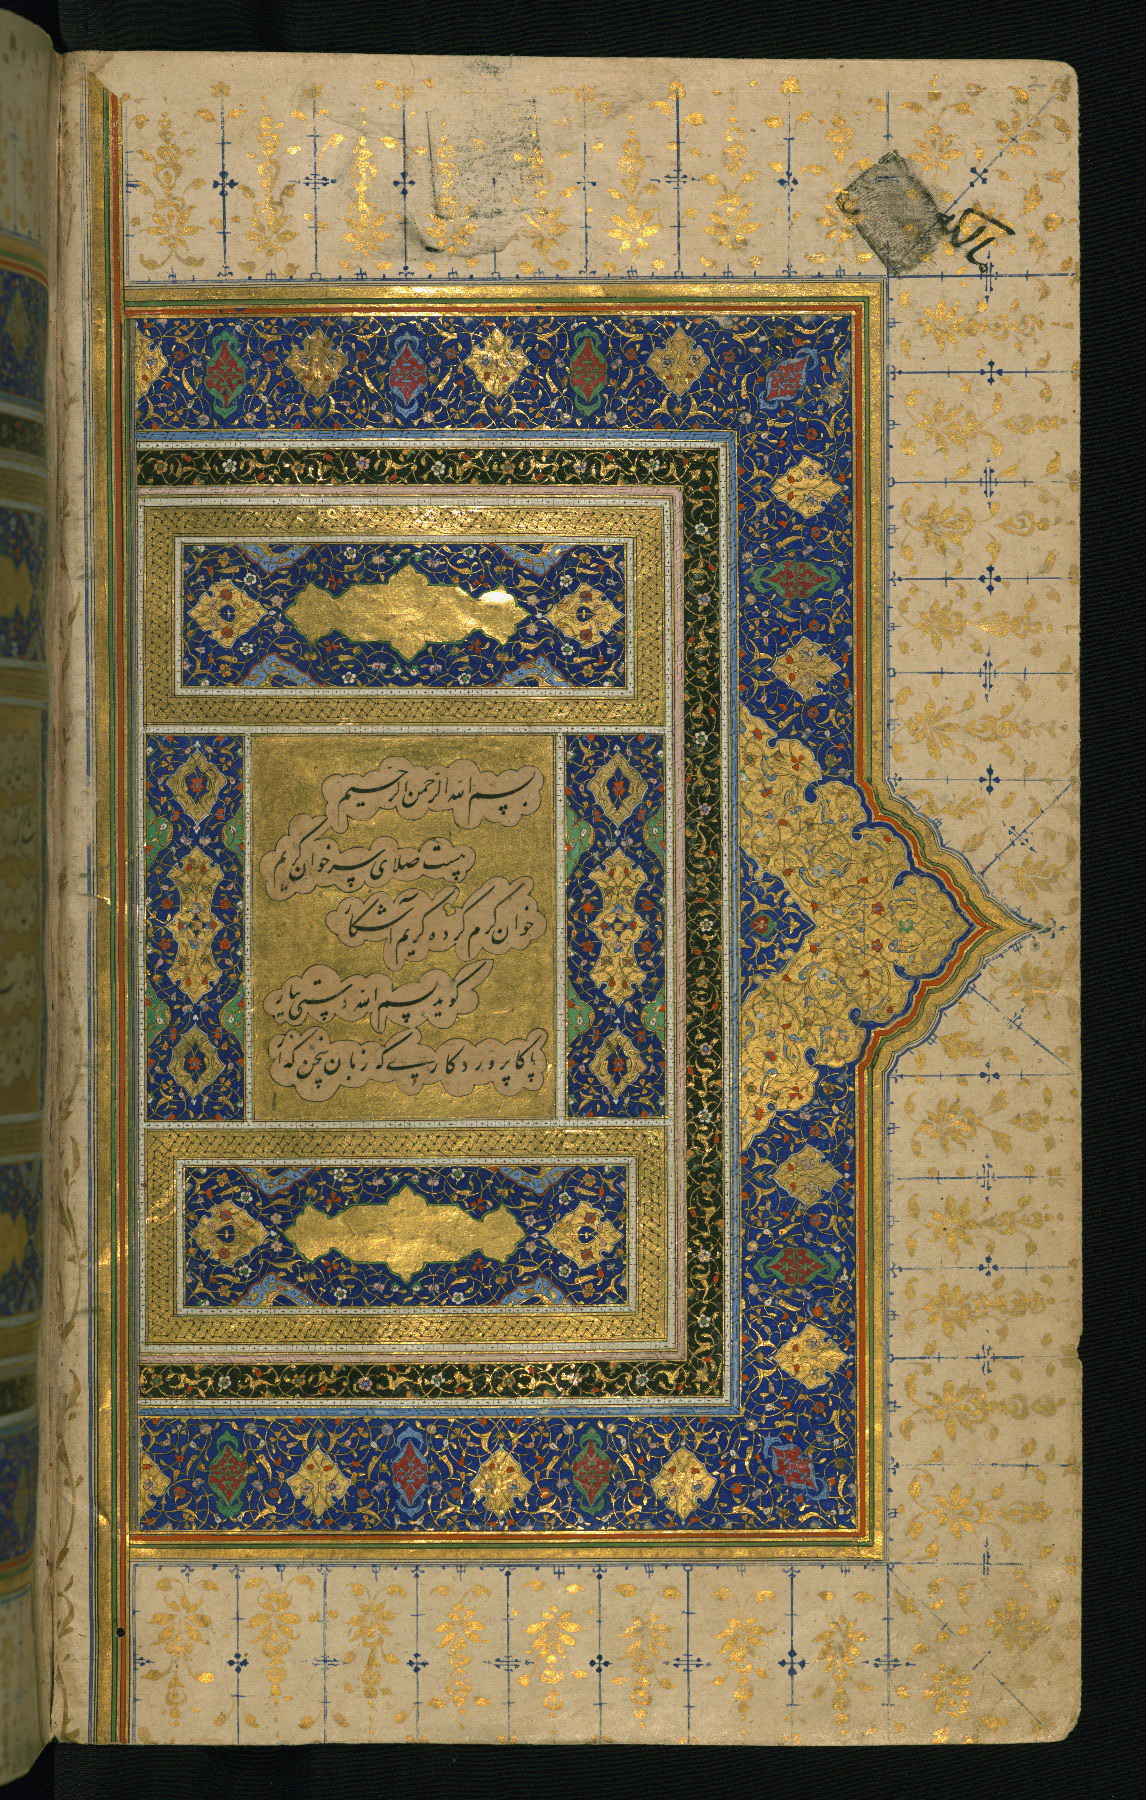 مالکه
بسم الله الرحمن الرحیم
هست صلای سر خوان کریم
خوان کرم کرده کریم آشکار
گوید بسم الله دستی بیار
پاکا پروردکاری که زبان سخن که از